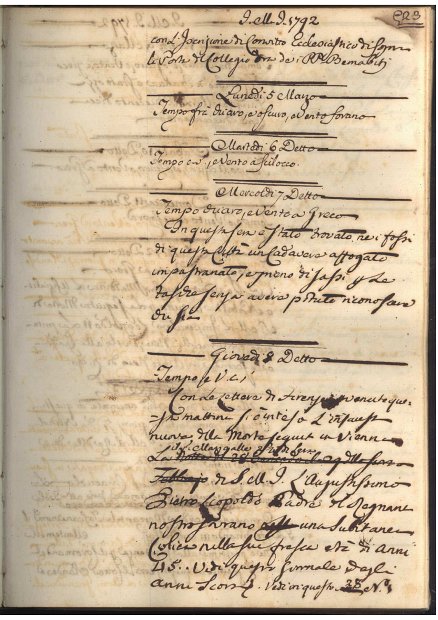 J. M. J. 1792
223
con L'Iscrizione di Convitto Ecclesiastico di Sopra
le Porte di Collegio dei RR. Bernabiti
Lunedì 5 Marzo
Tempo frà chiaro, e oscuro, e Vento forano
Martedì 6 Detto
Tempo e Vento a Scilocco
Mercoldì 7 Detto
Tempo chiaro, e Vento a Greco
In questa sera è stato trovato nei fossi
di questa Città un Cadavere affogato
e pieno di sassi
senza avere potuto riconoscere
chi sia
Giovedì 8 Detto
Tempo e V. a
Con le Lettere di Firenze venute que-
sta mattina s'è inteso L'infausta
nuova della Morte seguita in Vienna
di S. M. I. L'Augustissimo
Pietro Leopoldo Padre del Regnante
nostro Sovrano una Subitanea
Colica nella sua fresca età di Anni
45. Vedi questo Giornale Degli
Anni Scorsi. Vedi in questo 38 N.°